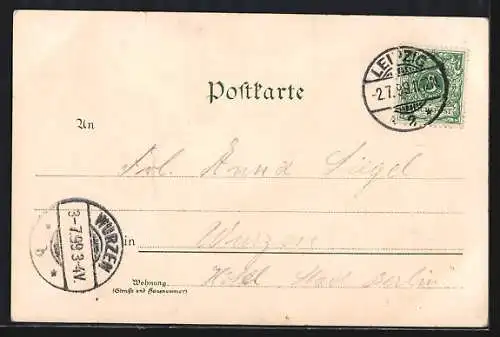 LEIPZIG
-2.7.99.
2.
Postkarte
An
Frl. Anna
WURZEN
3-7 99 3-4V.
b
in Wurzen
Hotel Stadt Berlin"
Wohnung
(Straße und Hausnummer)